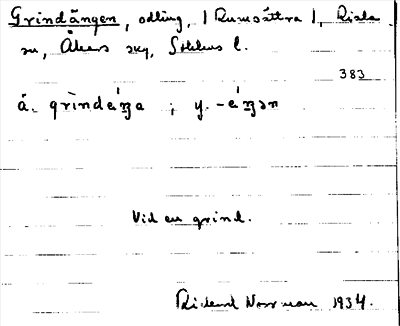 Grindängen, odling, | Rumsättra |, Risla
sn, Åkers sky, Sthlms l.
383
ä. grìnde´ŋa ; y. -e´ŋən
Vid en grind.
Rickard Norrman 1934.